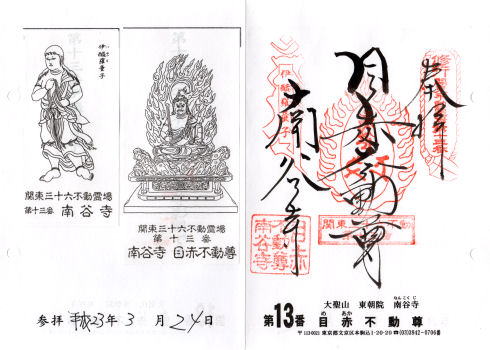 伊醯羅童子
関東三十六不動霊場
第十三番 南谷寺
関東三十六不動霊場
第十三番
南谷寺 目赤不動尊
参拝 平成23年 3 月 24日
奉拝
目赤不動尊
南谷寺
伊醯羅童子
関東三十六不動
目赤
不動尊
南谷寺
大聖山 東朝院 南谷寺
なんこくじ
第13番 目赤不動尊
め あか
〒113021 東京都文京区本駒込1-20-20 ☎(03)3942-0706番